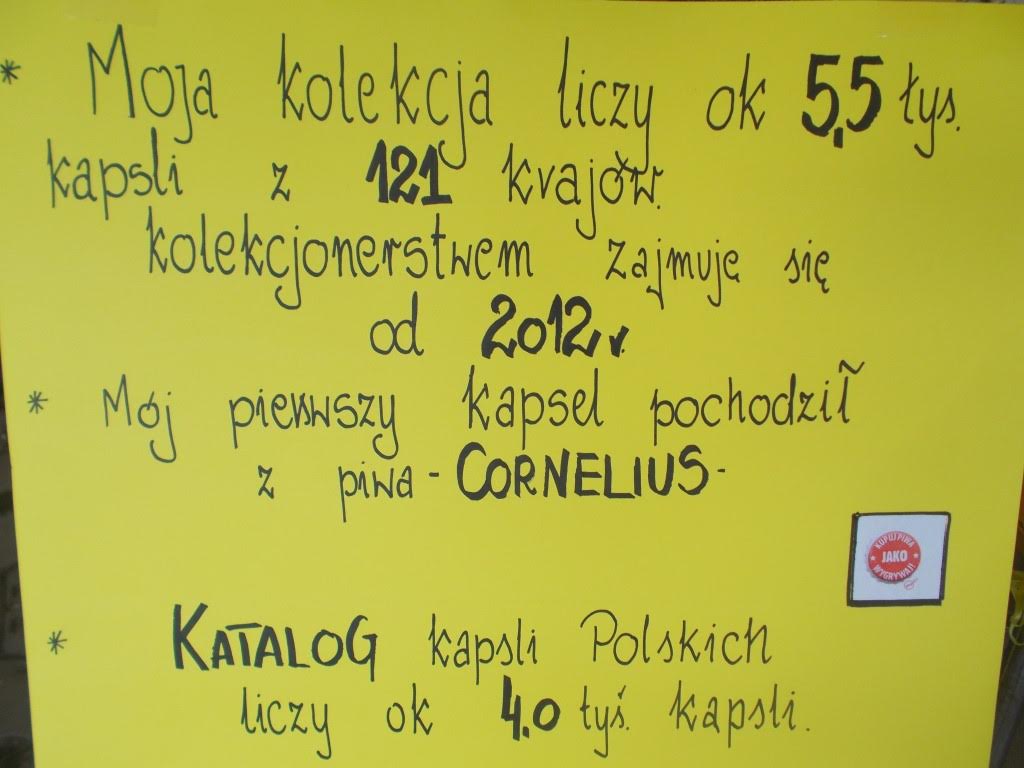 * Moja kolekcja liczy ok 5,5 tyś.
kapsli z 121 krajów.
kolekcjonerstwem zajmuję się
od 2012r.
* Mój pierwszy kapsel pochodził
z piwa - CORNELIUS -
KUPUJ PIWA
JAKO
WYGRYWAJ!
* KATALOG kapsli Polskich
liczy ok 4.0 tyś. kapsli.